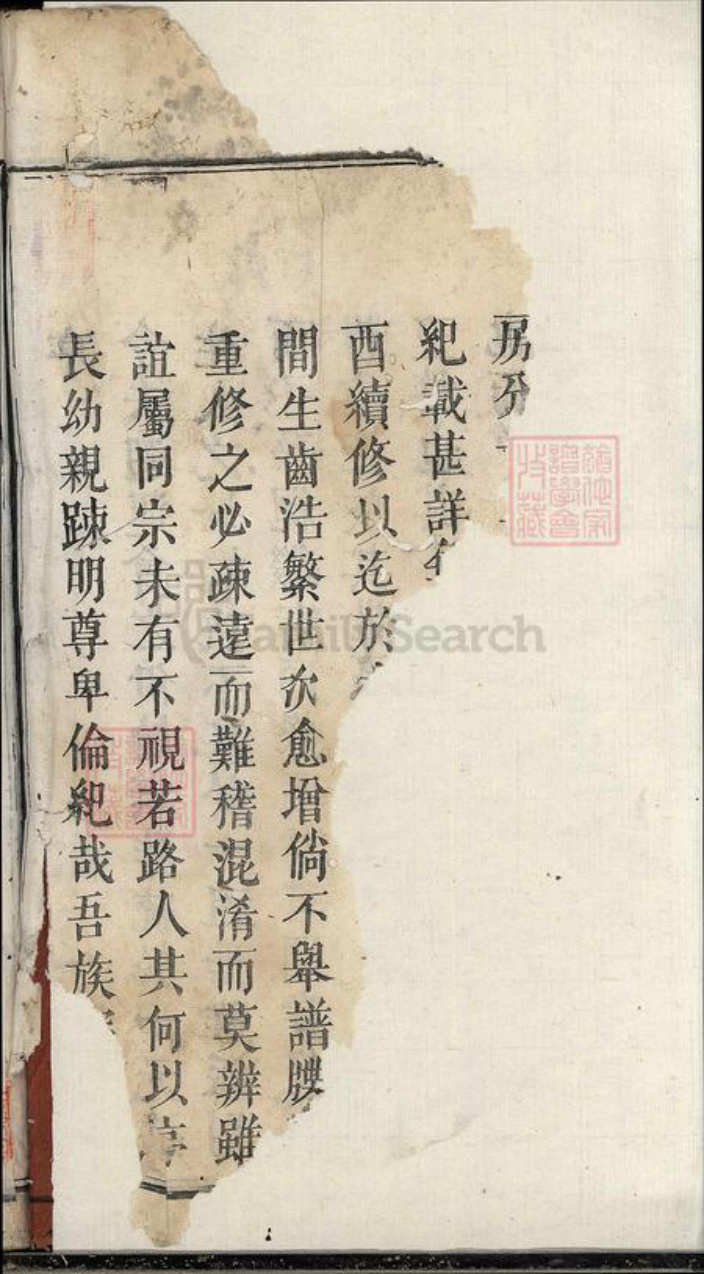 房分
紀載甚詳
酉續修以迄於
間生齒浩繁世次愈增倘不舉譜牒
重修之必疎遠而難稽混淆而莫辨雖
誼屬同宗未有不視若路人其何以序
長幼親踈明尊卑倫紀哉吾族
FamilySearch